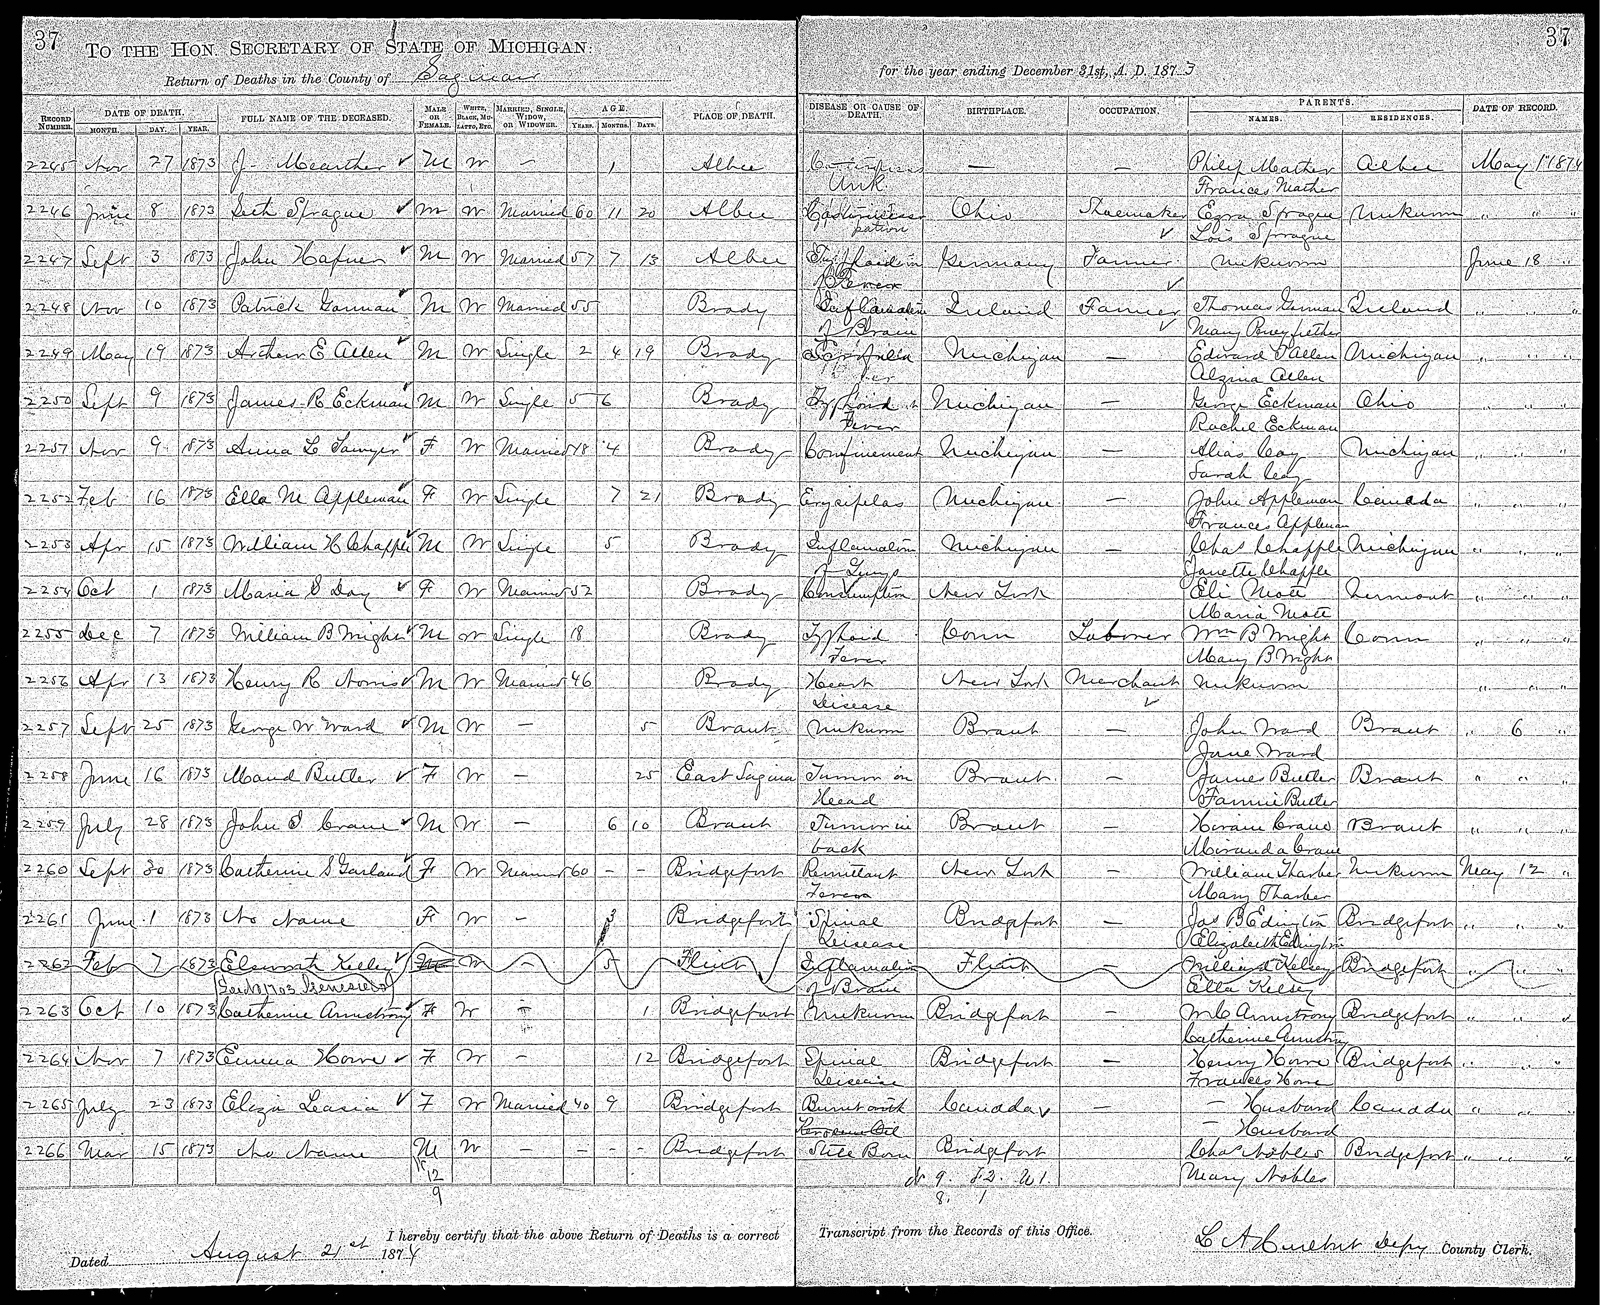 37
TO THE HON. SECRETARY OF STATE OF MICHIGAN:
37
Return of Deaths in the County of Saginaw
for the year ending December 31st, A. D. 1873
RECORD NUMBER. DATE OF DEATH. MONTH. DAY. YEAR. FULL NAME OF THE DECEASED. MALE OR FEMALE. WHITE, BLACK, MULATTO, ETC. MARRIED, SINGLE, WIDOW, OR WIDOWER. AGE. YEARS. MONTHS. DAYS. PLACE OF DEATH. DISEASE OR CAUSE OF DEATH. BIRTHPLACE. OCCUPATION. PARENTS. NAMES. RESIDENCES. DATE OF RECORD.
2245 Nov 27 1873 J- Mcarther M W – 1 Albee — — Philip Mather Albee May 1" 1874
Unk. Frances Mather
2246 June 8 1873 Seth Sprague M W Married 60 11 20 Albee Ohio Shoemaker Ezra Sprague Unknown " " "
Lois Sprague
2247 Sept 3 1873 John Hafner M W Married 57 7 13 Albee Germany Farmer Unknown June 18 "
2248 Nov 10 1873 Patrick Gorman M W Married 55 Brady Inflamation Ireland Farmer Thomas Gorman Ireland " " "
of Brain Mary
2249 May 19 1873 Arthur E Allen M W Single 2 4 19 Brady Michigan — Edward J Allen Michigan " " "
Alzina Allen
2250 Sept 9 1873 James R Eckman M W Single 5 6 Brady Typhoid Michigan — George Eckman Ohio " " "
Fever Rachel Eckman
2251 Nov 9 1873 Anna L Sawyer F W Married 18 4 Brady Confinement Michigan — Alias Coy Michigan " " "
Sarah Coy
2252 Feb 16 1873 Ella M Appleman F W Single 7 21 Brady Erysipelas Michigan — John Appleman Canada " " "
Frances Appleman
2253 Apr 15 1873 William H Chapple M W Single 5 Brady Inflamation Michigan — Chas Chapple Michigan " " "
of Lungs Janette Chapple
2254 Oct 1 1873 Maria S Day F W Married 52 Brady Consumption New York Eli Mott Vermont " " "
Maria Mott
2255 Dec 7 1873 William B Wright M W Single 18 Brady Typhoid Conn Laborer Wm B Wright Conn " " "
Fever Mary B Wright
2256 Apr 13 1873 Henry R Norris M W Married 46 Brady Heart New York Merchant Unknown " " "
Disease
2257 Sept 25 1873 George W Ward M W – 5 Brant Unknown Brant — John Ward Brant " 6 "
Jane Ward
2258 June 16 1873 Maud Butler F W – 25 East Sagina Tumor on Brant — James Butler Brant " " "
Head Fannie Butler
2259 July 28 1873 John S Crane M W – 6 10 Brant Tumor in Brant — Hiram Crane Brant " " "
back Miranda Crane
2260 Sept 30 1873 Catherine S Garland F W Married 60 - - Bridgeport Remittant New York — William Tharber Unknown May 12 "
Fever Mary Tharber
2261 June 1 1873 No Name F W – 3 Bridgeport Spinal Bridgeport — Jas B Edington Bridgeport " " "
Disease Elizabeth Edington
2262 Feb 7 1873 Elsworth Kelsey M W – 5 Flint Inflamation Flint — William Kelsey Bridgeport " " "
See No 1703 Genesee Co of Brain Ella Kelsey
2263 Oct 10 1873 Catherine Armstrong F W – 1 Bridgeport Unknown Bridgeport — Wm C Armstrong Bridgeport " " "
Catherine Armstrong
2264 Nov 7 1873 Emma Howe F W – 12 Bridgeport Spinal Bridgeport — Henry Howe Bridgeport " " "
Disease Frances Howe
2265 July 23 1873 Eliza Leasia F W Married 40 9 Bridgeport Burnt with Canada — – Husband Canada " " "
Kerosene Oil – Husband
2266 Mar 15 1873 No Name M W – – – – Bridgeport Still Born Bridgeport Chas Nobles Bridgeport " " "
12 N 9. F 2. U 1. Mary Nobles
9 8. 1
I hereby certify that the above Return of Deaths is a correct Transcript from the Records of this Office.
Dated August 21st 1874
L A Hurlbut Depy County Clerk.